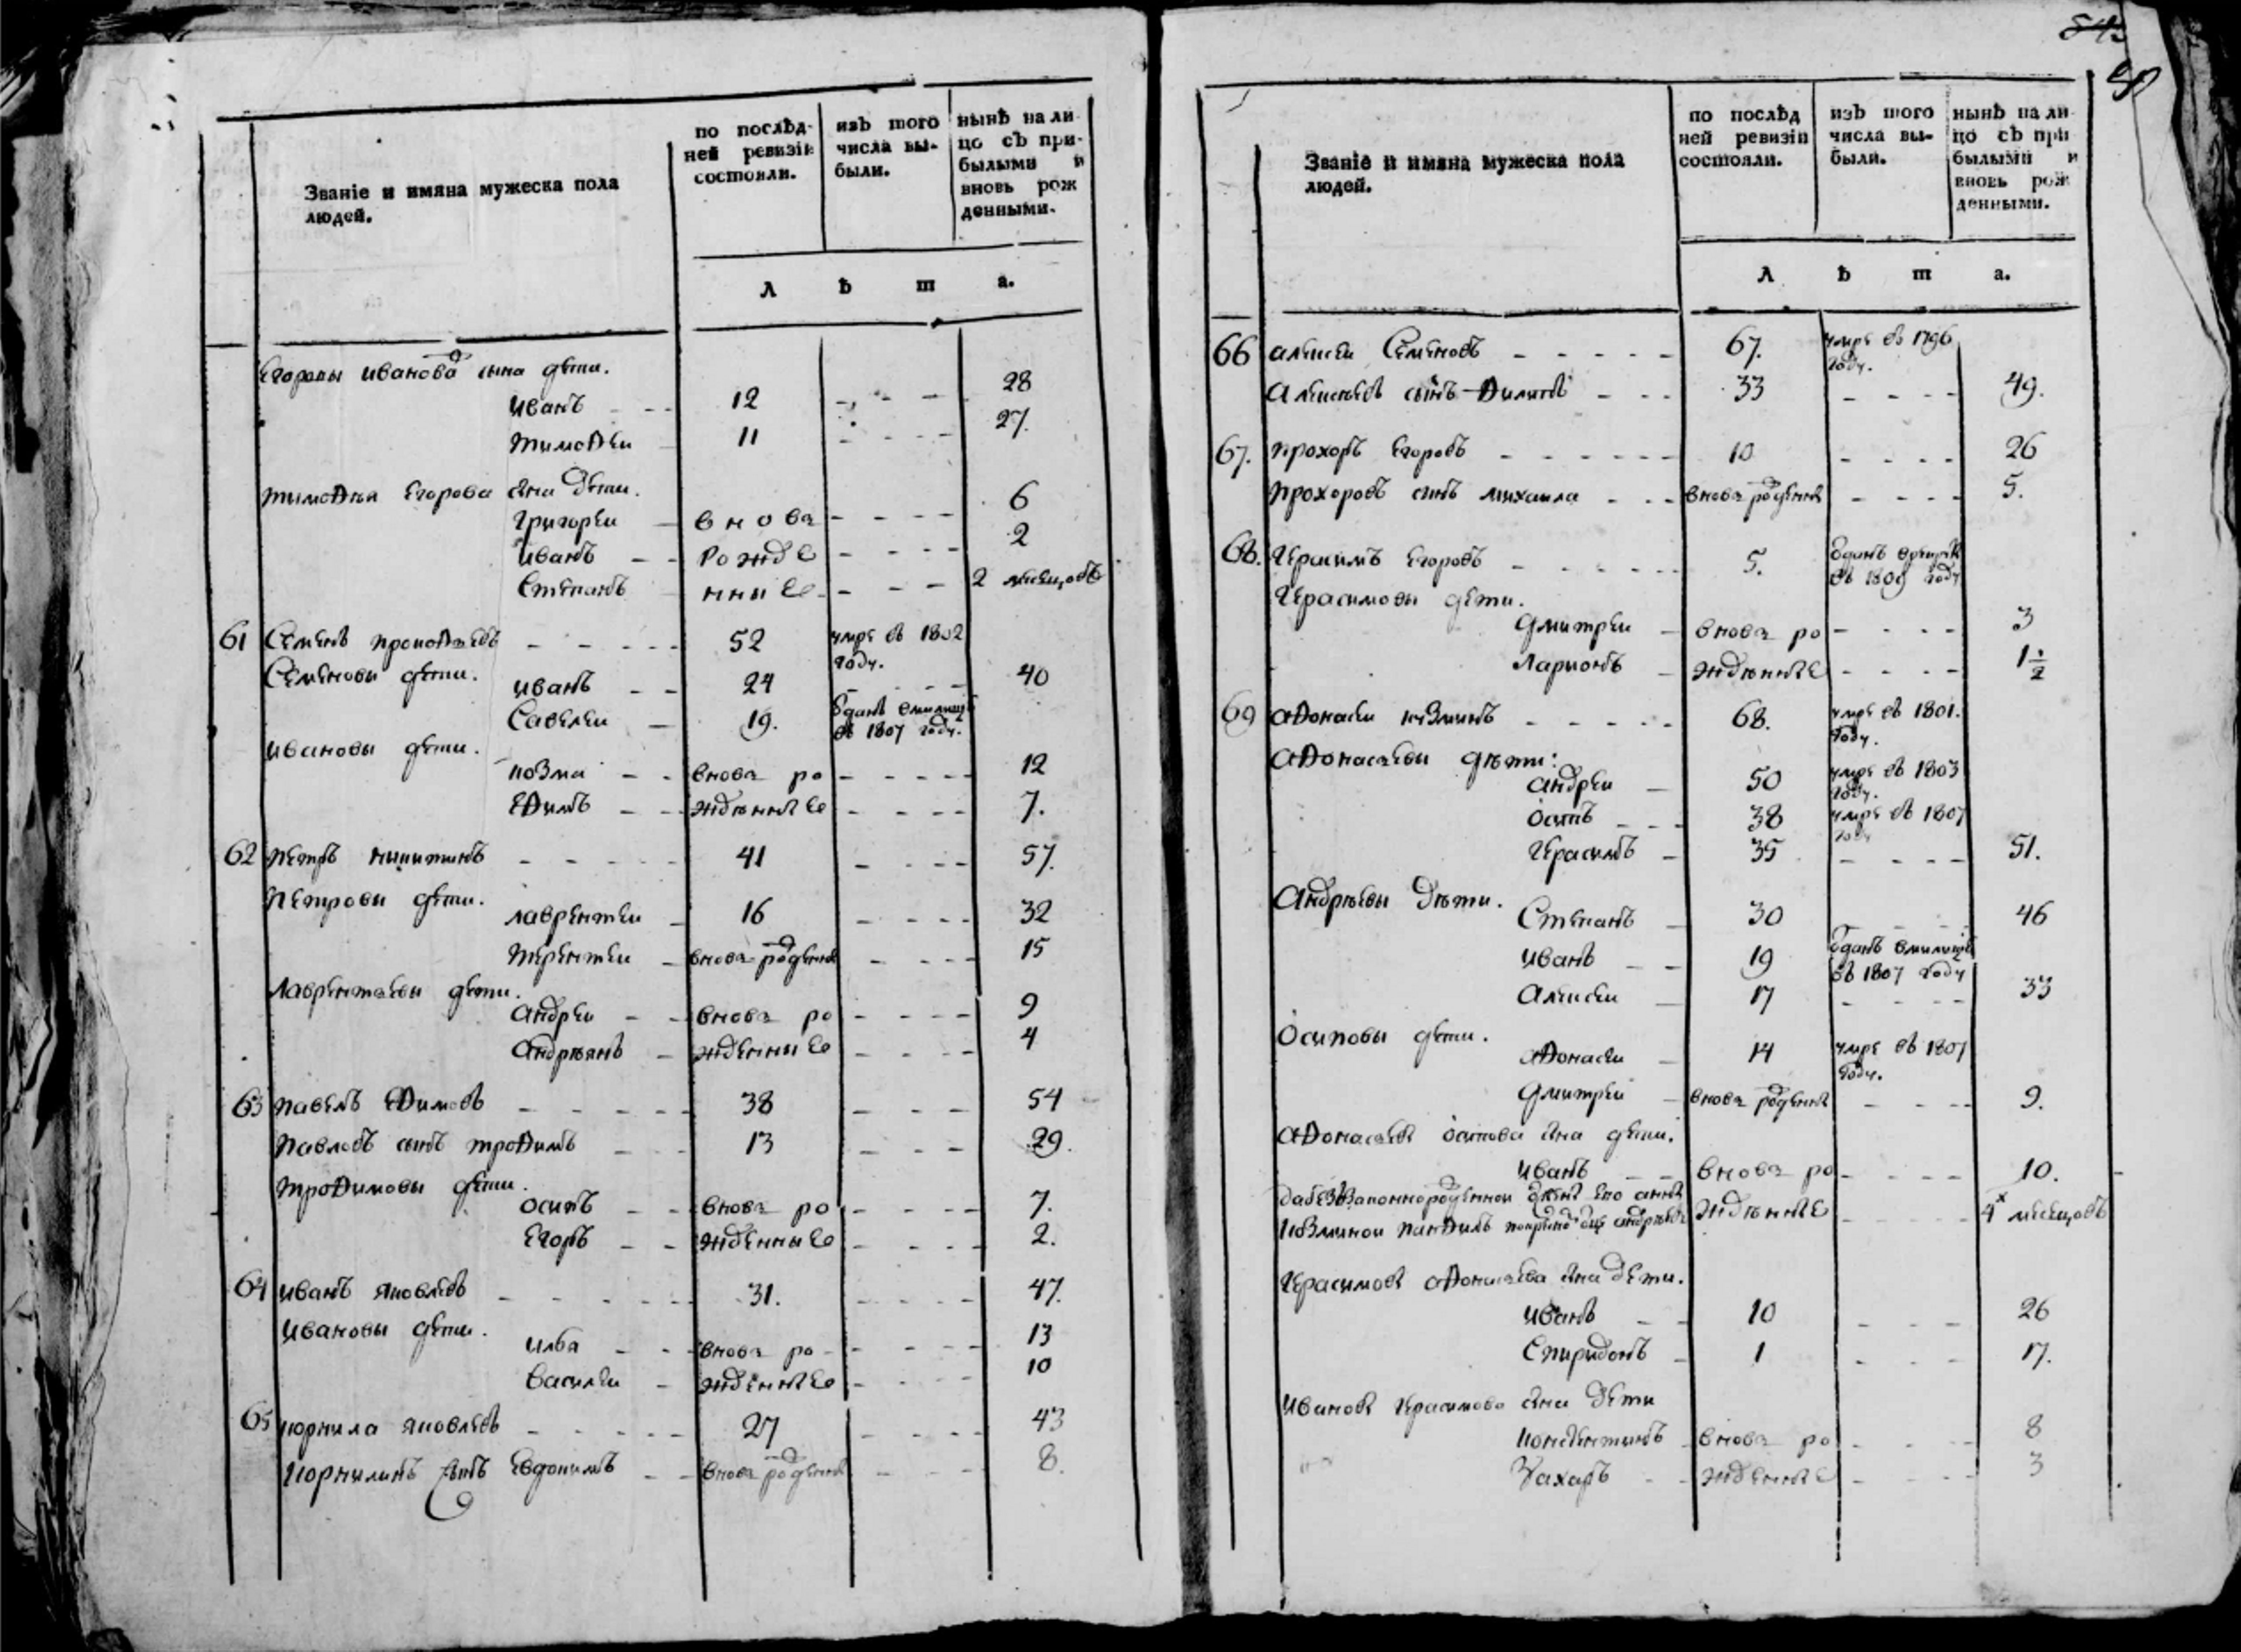 Званіе и имяна мужеска пола
людей.
по послѣд-
ней ревизіи
состояли.
изъ того
числа вы-
были.
нынѣ на ли-
цо съ при-
былыми и
вновь рож
денными.
л ѣ т а.
Егоровы иванова сына дети.
иванъ 12 28
тимоѳеи 11 27.
тимоѳея Егорова сна дети.
григореи вновь 6
иванъ рожде 2
Степанъ нные 2 месецовъ
61 Семенъ прокоѳьевъ 52 умре въ 1802
году.
Семеновы дети.
иванъ 24 40
Савелеи 19. Отданъ вмилицию
въ 1807 году.
ивановы дети.
козма вновь ро 12
еѳимъ жденные 7.
62 петръ никитинъ 41 57.
петровы дети.
лаврентеи 16 32
терентеи вновь рожденъ 15
лаврентьевы дети.
андреи вновь ро 9
андреянъ жденные 4
63 павелъ еѳимовъ 38 54
павловъ сынъ троѳимъ 13 29.
троѳимовы дети.
осипъ вновь ро 7.
егоръ жденные 2.
64 иванъ яковлевъ 31. 47.
ивановы дети.
илья вновь ро 13
василеи жденные 10
65 корнила яковлевъ 27 43
корнилинъ сынъ евдокимъ вновь рожденъ 8.
Званіе и имяна мужеска пола
людей.
по послѣд
ней ревизіи
состояли.
изъ того
числа вы-
были.
нынѣ на ли-
цо съ при
былыми и
вновь рож
денными.
л ѣ т а.
66 алексеи Семеновъ 67. умре въ 1796
году.
алексеевъ сынъ ѳилипъ 33 49.
67. прохоръ егоровъ 10 26
прохоровъ сынъ михаила вновь рожденъ 5.
68. герасимъ егоровъ 5. Отданъ врекруты
въ 1809 году
герасимовы дети.
дмитреи вновь ро 3
ларионъ жденные 1 1/2
69 аѳонасеи кузминъ 68. умре въ 1801.
году.
аѳонасьевы дети:
андреи 50 умре въ 1803
году.
осипъ 38 умре въ 1807
году
герасимъ 35 51.
андреевы дети.
Степанъ 30 46
иванъ 19 Отданъ вмилицию
въ 1807 году
алексеи 17 33
осиповы дети.
аѳонасеи 14 умре въ 1807
году.
дмитреи вновь рожденъ 9.
аѳонасья осипова сна дети.
иванъ вновь ро 10.
да беззаконнорожденнои жене его анне
козминои панѳилъ андреевъ жденные 4 месецовъ
герасимова аѳонасьева сна дети.
иванъ 10 26
Спиридонъ 1 17.
иванова герасимова сна дети
констентинъ вновь ро 8
Захаръ жденные 3